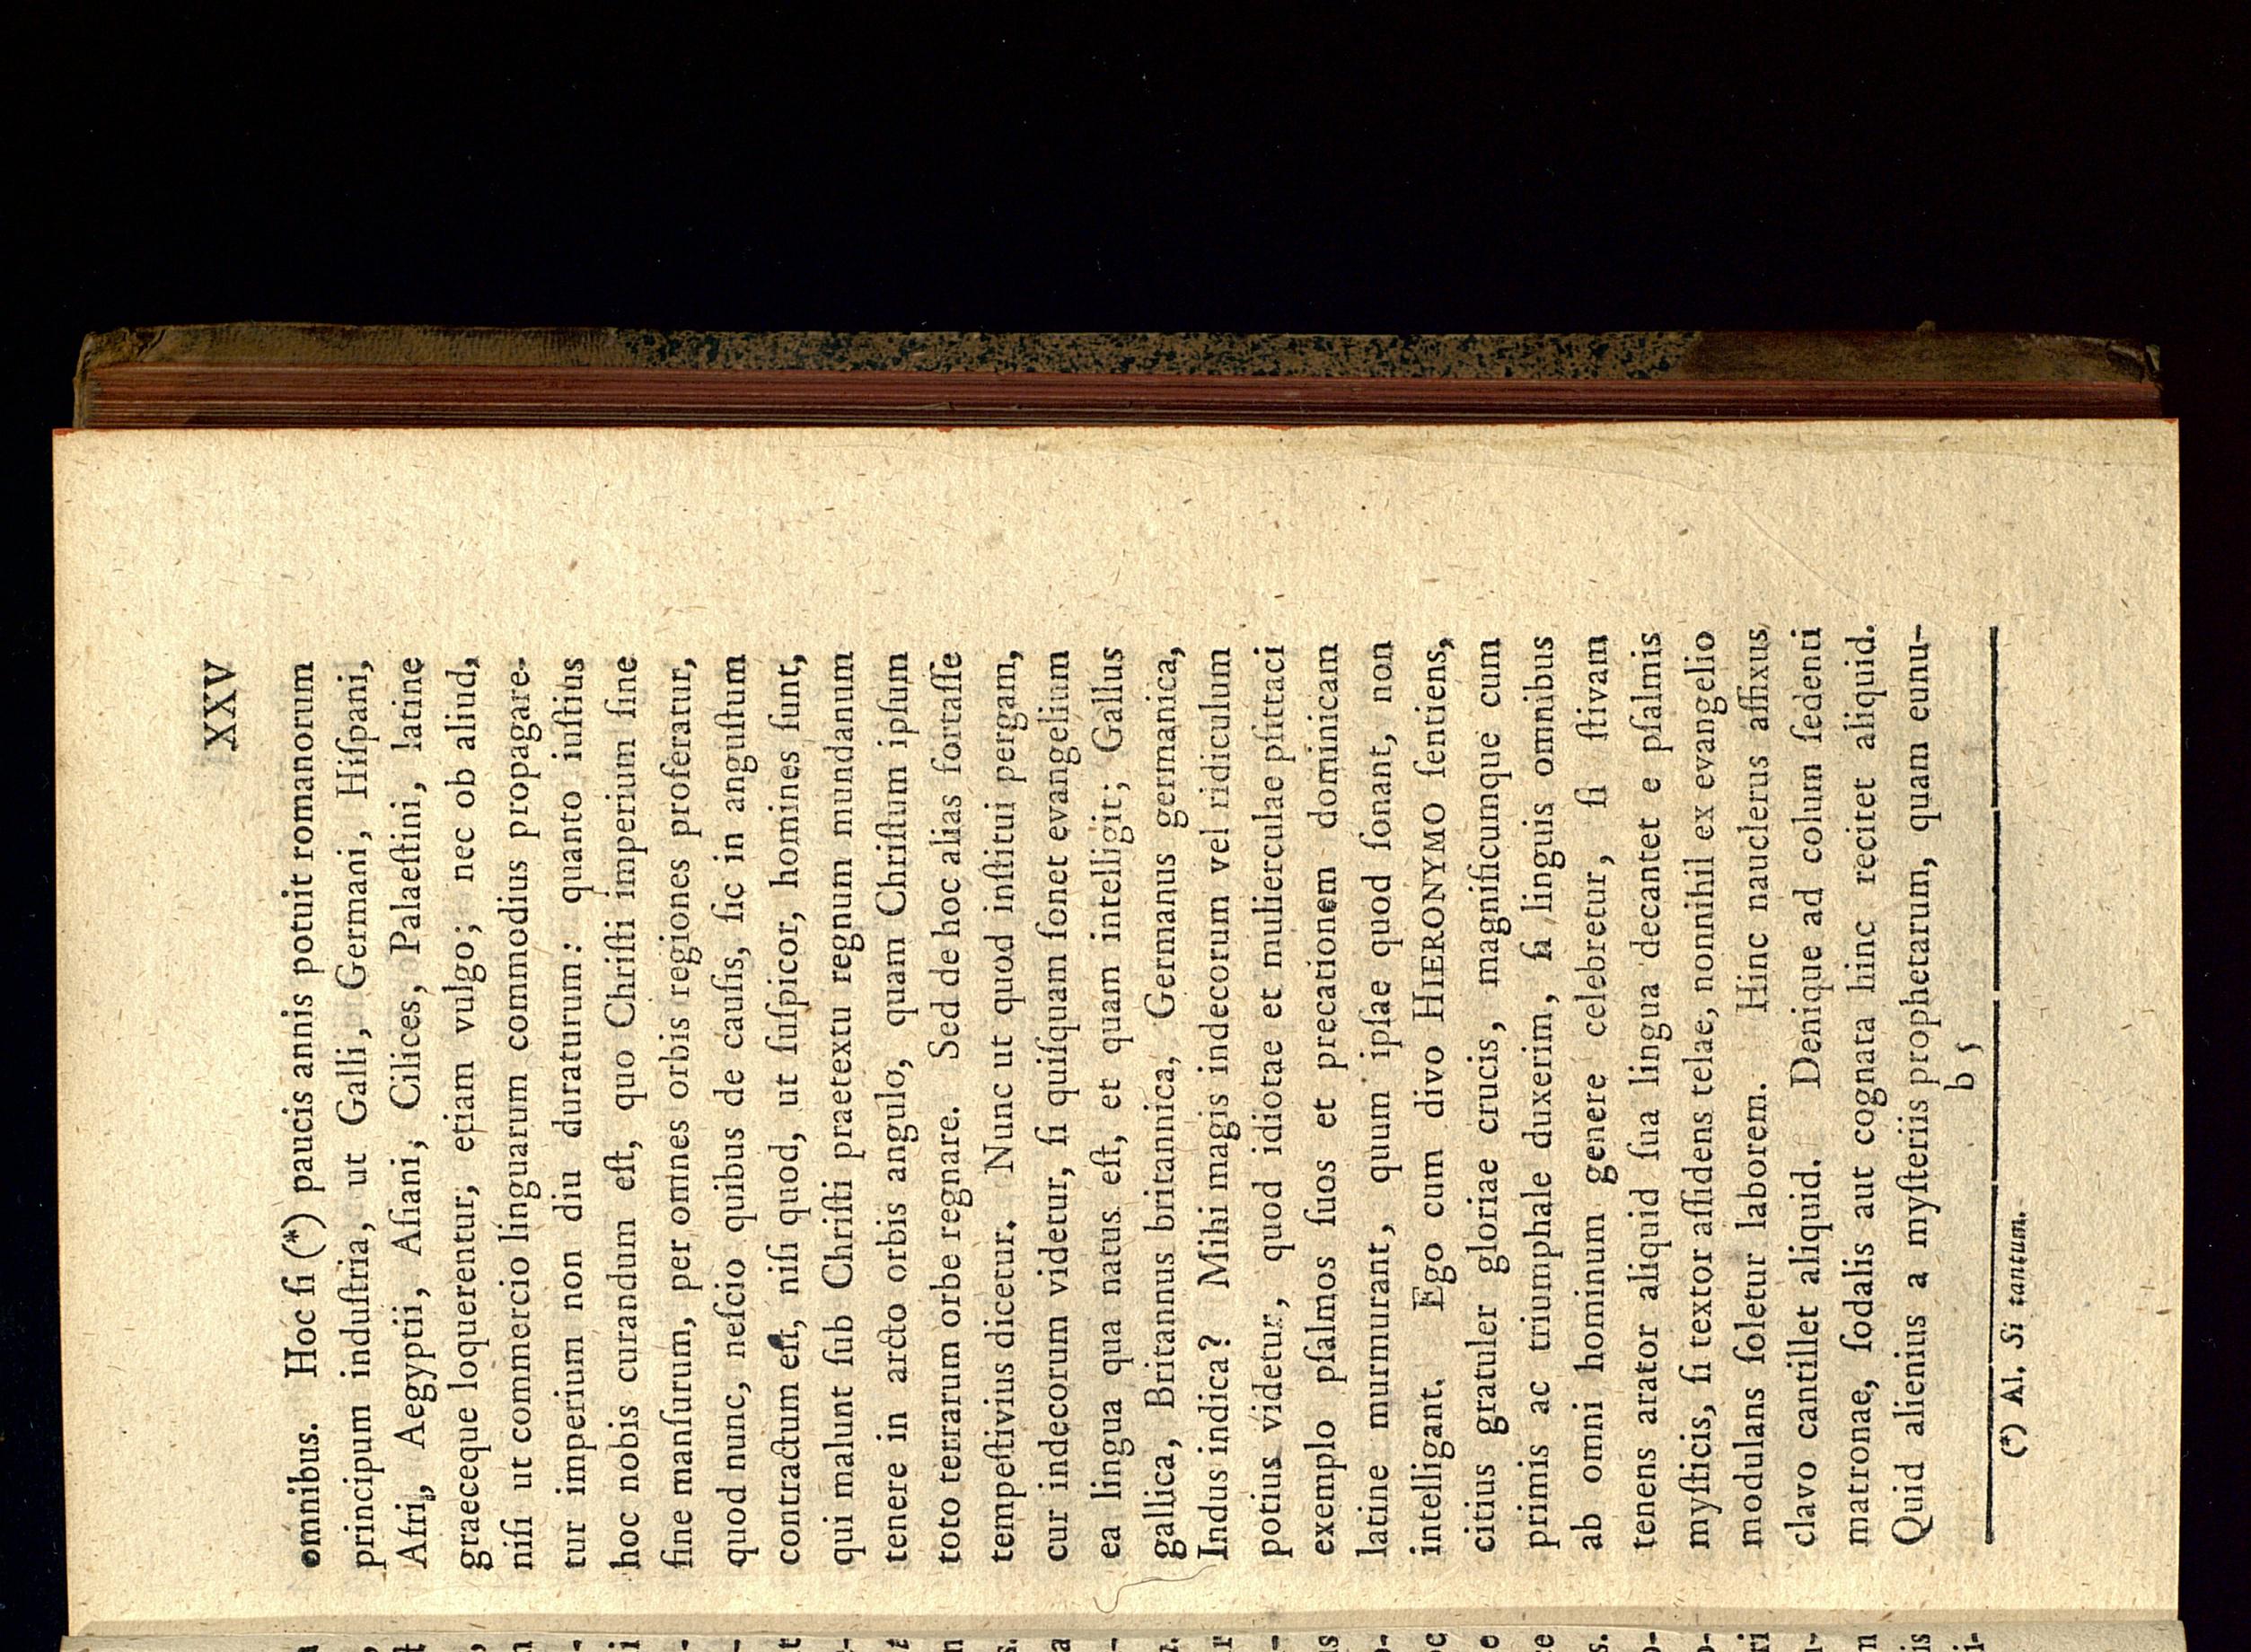 XXV
omnibus. Hoc ſi (*) paucis annis potuit romanorum
principum induſtria, ut Galli, Germani, Hiſpani,
Afri, Aegyptii, Aſiani, Cilices, Palaeſtini, latine
graeceque loquerentur, etiam vulgo; nec ob aliud,
niſi ut commercio linguarum commodius propagare-
tur imperium non diu duraturum: quanto iuſtius
hoc nobis curandum eſt, quo Chriſti imperium ſine
fine manſurum, per omnes orbis regiones proferatur,
quod nunc, neſcio quibus de cauſis, ſic in anguſtum
contractum eſt, niſi quod, ut ſuſpicor, homines ſunt,
qui malunt ſub Chriſti praetextu regnum mundanum
tenere in arcto orbis angulo, quam Chriſtum ipſum
toto terrarum orbe regnare. Sed de hoc alias fortaſſe
tempeſtivius dicetur. Nunc ut quod inſtitui pergam,
cur indecorum videtur, ſi quiſquam ſonet evangelium
ea lingua qua natus eſt, et quam intelligit; Gallus
gallica, Britannus britannica, Germanus germanica,
Indus indica? Mihi magis indecorum vel ridiculum
potius videtur, quod idiotae et mulierculae pſittaci
exemplo pſalmos ſuos et precationem dominicam
latine murmurant, quum ipſae quod ſonant, non
intelligant. Ego cum divo HIERONYMO ſentiens,
citius gratuler gloriae crucis, magnificumque cum
primis ac triumphale duxerim, ſi linguis omnibus
ab omni hominum genere celebretur, ſi ſtivam
tenens arator aliquid ſua lingua decantet e pſalmis
myſticis, ſi textor aſſidens telae, nonnihil ex evangelio
modulans ſoletur laborem. Hinc nauclerus affixus
clavo cantillet aliquid. Denique ad colum ſedenti
matronae, ſodalis aut cognata hinc recitet aliquid.
Quid alienius a myſteriis prophetarum, quam eunu-
b 5
(*) Al. Si tantum.